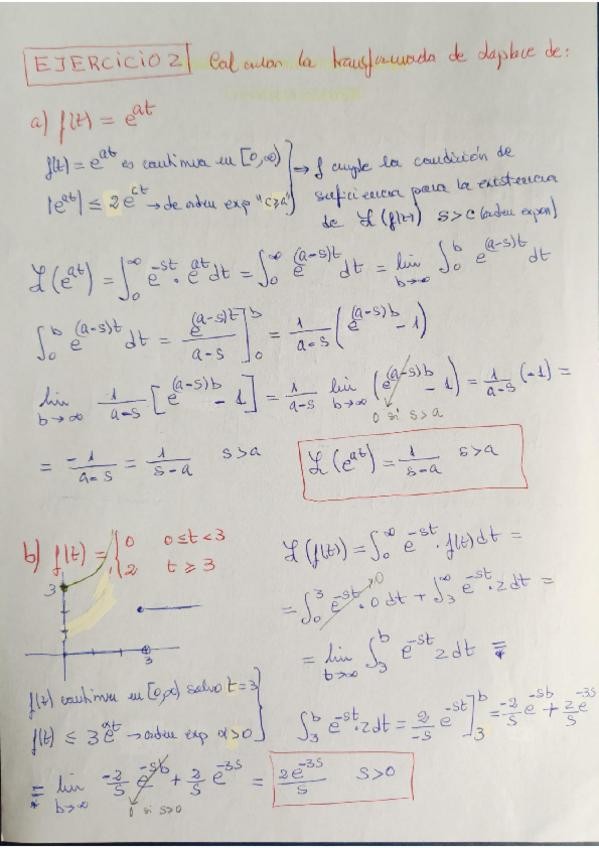 EJERCICIO 2 Calcular la transformada de Laplace de:
a) f(t) = e^{at}
f(t) = e^{at} es continua en [0,∞)
|e^{at}| ≤ 2e^{ct} → de orden exp "c≥a"
→ f cumple la condición de
suficiencia para la existencia
de ℒ(f(t)) s>c (orden expon)
ℒ(e^{at}) = ∫_0^∞ e^{-st} · e^{at} dt = ∫_0^∞ e^{(a-s)t} dt = lim_{b→∞} ∫_0^b e^{(a-s)t} dt
∫_0^b e^{(a-s)t} dt = e^{(a-s)t}/(a-s) ]_0^b = 1/(a-s) (e^{(a-s)b} - 1)
lim_{b→∞} 1/(a-s) [e^{(a-s)b} - 1] = 1/(a-s) lim_{b→∞} (e^{(a-s)b} - 1) = 1/(a-s) (-1) =
0 si s>a
= -1/(a-s) = 1/(s-a) s>a
ℒ(e^{at}) = 1/(s-a) s>a
b) f(t) = { 0 0≤t<3
2 t≥3
3
3
f(t) continua en [0,∞) salvo t=3
f(t) ≤ 3e^{αt} → orden exp α>0
ℒ(f(t)) = ∫_0^∞ e^{-st} · f(t) dt =
= ∫_0^3 e^{-st} · 0 dt + ∫_3^∞ e^{-st} · 2 dt =
0
= lim_{b→∞} ∫_3^b e^{-st} 2 dt =*
∫_3^b e^{-st} · 2 dt = 2/-s e^{-st} ]_3^b = -2/s e^{-sb} + 2/s e^{-3s}
=* lim_{b→∞} -2/s e^{-sb} + 2/s e^{-3s} = 2e^{-3s}/s s>0
0 si s>0